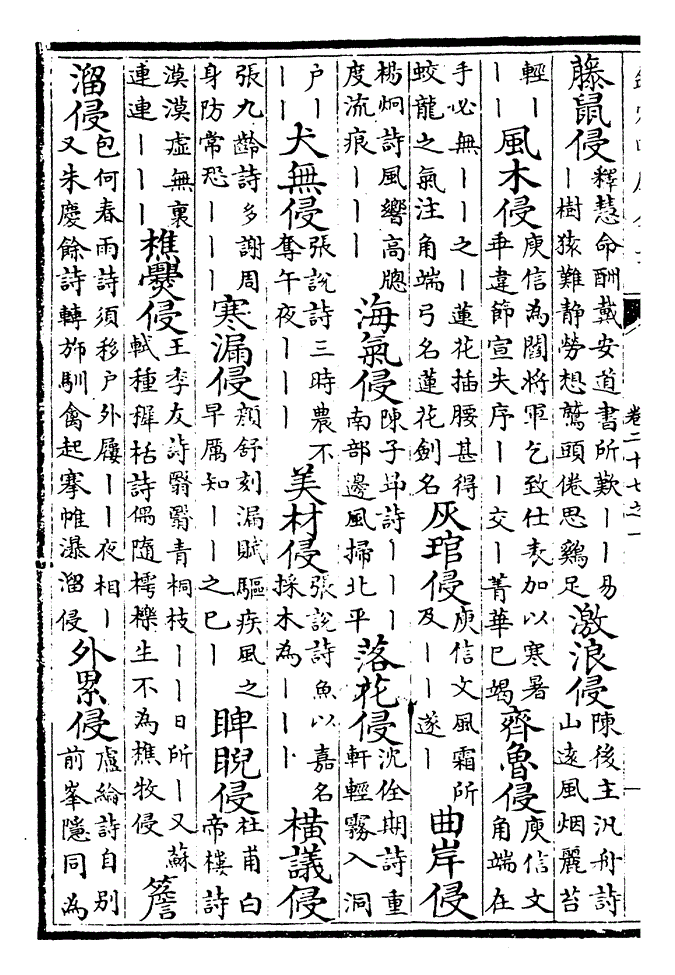 卷二十七之一
藤鼠侵
釋慧命酬戴安道書所歎丨丨易
丨樹猿難静勞想鷲頭倦思鷄足
激浪侵
陳後主汎舟詩
山遠風烟麗苔
輕丨
丨丨
風木侵
庾信為閻將軍乞致仕表加以寒暑
乖違節宣失序丨丨交丨菁華巳竭
齊魯侵
庾信文
角端在
手必無丨丨之丨蓮花插腰甚得
蛟龍之氣注角端弓名蓮花劍名
灰琯侵
庾信文風霜所
及丨丨遂丨
曲岸侵
楊炯詩風響高牕
度流痕丨丨丨
海氣侵
陳子昻詩丨丨丨
南部邊風掃北平
落花侵
沈佺期詩重
軒輕霧入洞
户丨
丨丨
犬無侵
張說詩三時農不
奪午夜丨丨丨
美材侵
張說詩魚以嘉名
採木為丨丨丨
橫議侵
張九齡詩多謝周
身防常恐丨丨丨
寒漏侵
顔舒刻漏賦驅疾風之
早厲知丨丨之巳丨
睥睨侵
杜甫白
帝樓詩
漠漠虚無裏
連連丨丨丨
樵爨侵
王李友詩翳翳青桐枝丨丨日所丨又蘇
軾種穉栝詩偶隨樗櫟生不為樵牧侵
簷
溜侵
包何春雨詩須移户外屨丨丨夜相丨
又朱慶餘詩轉斾馴禽起搴帷瀑溜侵
外累侵
盧綸詩自别
前峯隱同為